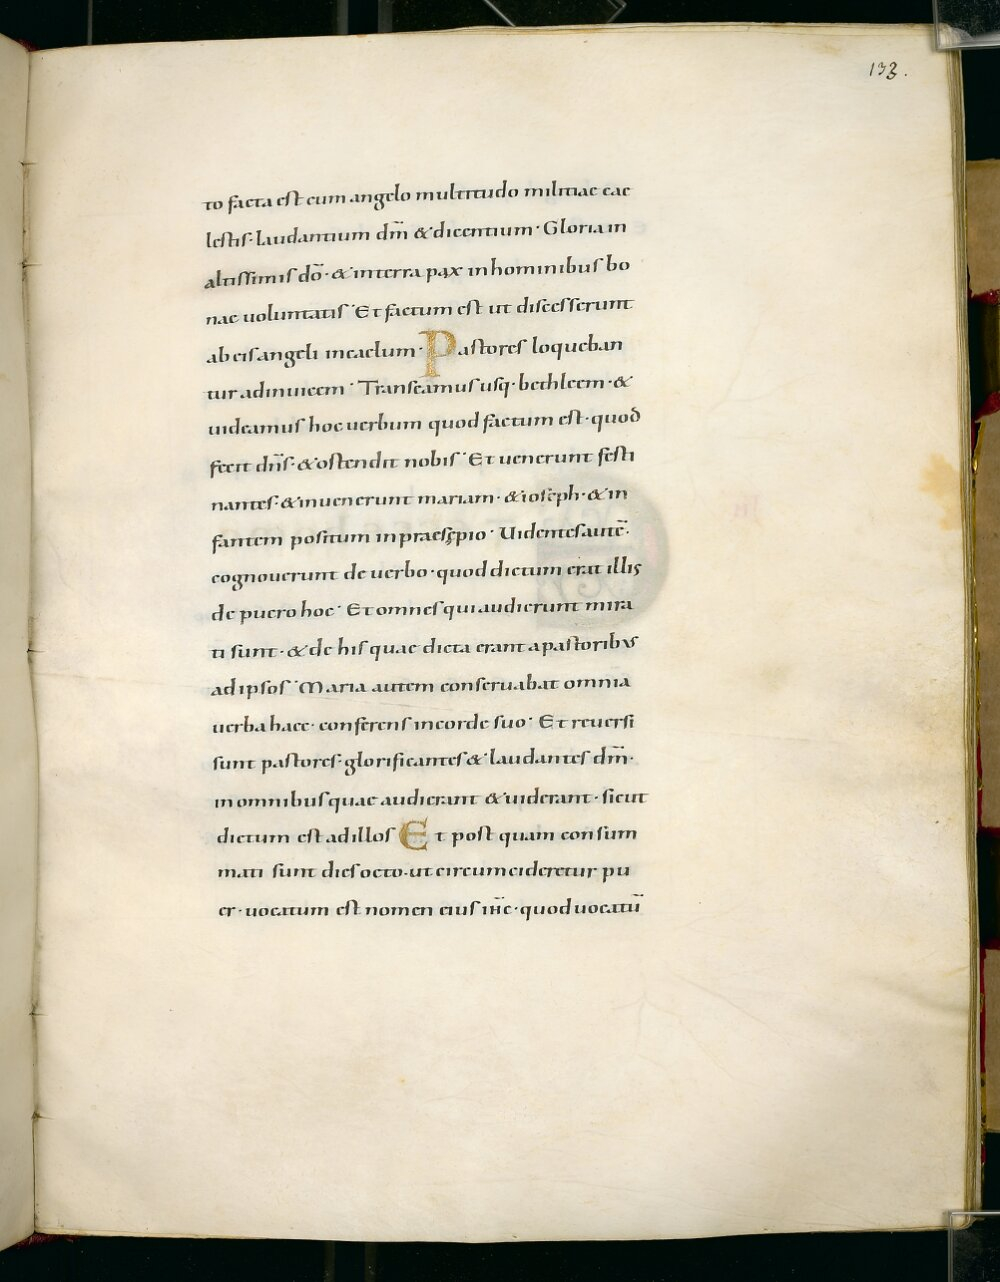 133.
to facta est cum angelo multitudo militiae cae
lestis· laudantium dm̄ & dicentium· Gloria in
altissimis dō· & in terra pax in hominibus bo
nae voluntatis· Et factum est ut discesserunt
ab eis angeli in caelum· Pastores loqueban
tur ad inuicem· Transeamus usq· bethleem· &
uideamus hoc uerbum quod factum est· quod
fecit dn̄s· & ostendit nobis· Et uenerunt festi
nantes· & inuenerunt mariam· & ioseph· & in
fantem positum in praesepio· Uidentes autē·
cognouerunt de uerbo· quod dictum erat illis
de puero hoc· Et omnes qui audierunt mira
ti sunt· & de his quae dicta erant a pastoribus
ad ipsos· Maria autem conseruabat omnia
uerba haec· conferens in corde suo· Et reuersi
sunt pastores· glorificantes & laudantes dm̄·
in omnibus quae audierant & uiderant· sicut
dictum est ad illos Et post quam consum
mati sunt dies octo· ut circumcideretur pu
er· uocatum est nomen eius ihc̄· quod uocatū